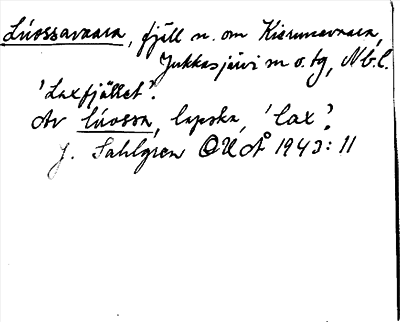 Lúossavaara, fjäll n. om Kierunavaara,
Jukkasjärvi sn o. tg, Nb.l.
'Laxfjället'.
Av lúossa, lapska, 'lax'.
J. Sahlgren OUÅ 1943:11